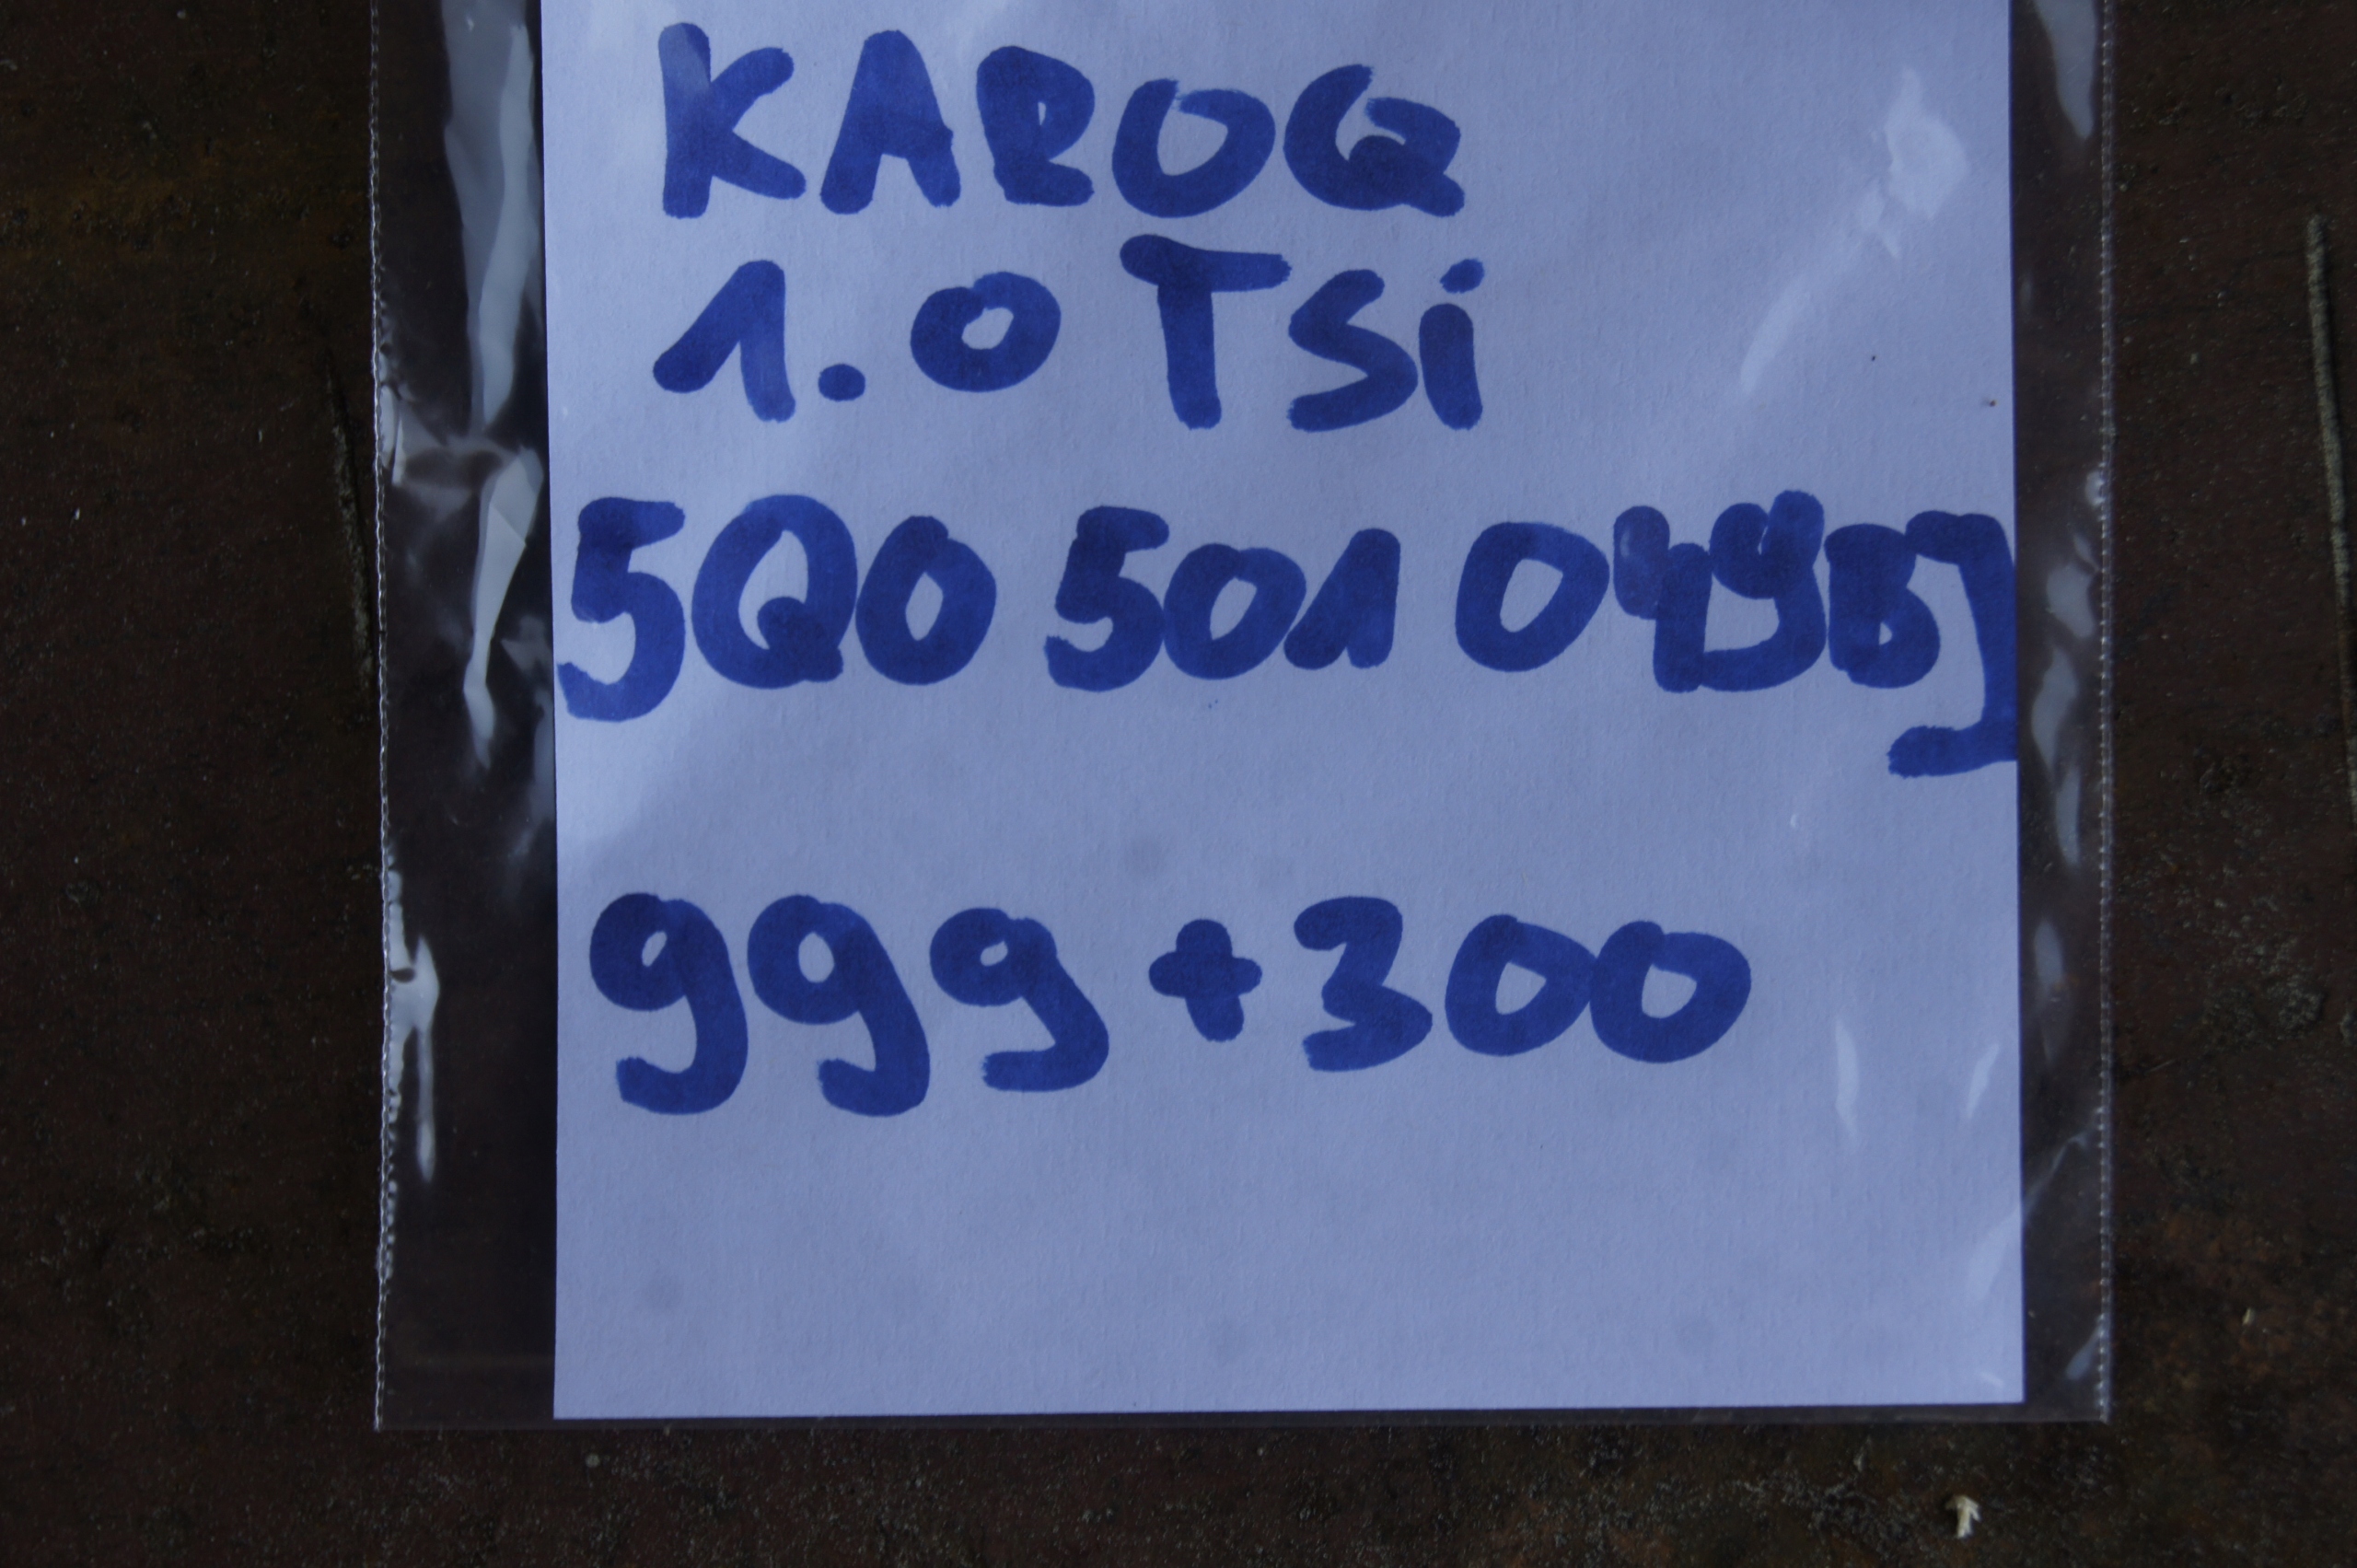 KAROQ
1.0 TSi
5Q0 501 049BJ
999+300